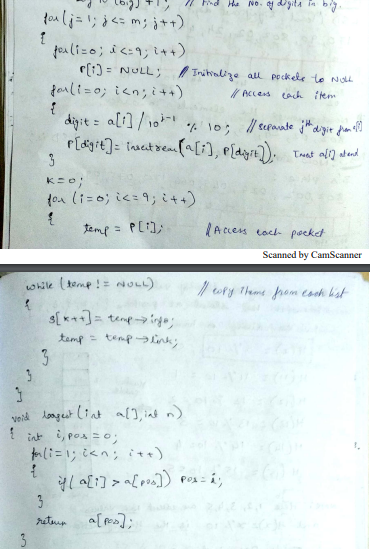 log 10 (big) + 1; // Find the No. of digits in big.
for(j=1; j<=m; j++)
{
for(i=0; i<=9; i++)
P[i] = NULL; // Initialize all pockets to NULL
for(i=0; i<n; i++) // Access each item
{
digit = a[i] / 10^j-1 % 10; // separate jth digit from a[i]
P[digit] = insertrear(a[i], P[digit]). Insert a[i] at end
}
K=0;
for (i=0; i<=9; i++)
{
temp = P[i]; // Access each pocket
Scanned by CamScanner
while (temp != NULL) // copy items from each list
{
a[K++] = temp→info;
temp = temp→link;
}
}
}
void largest(int a[], int n)
{ int i, pos = 0;
for(i=1; i<n; i++)
{
if( a[i] > a[pos]) pos = i;
}
return a[pos];
}